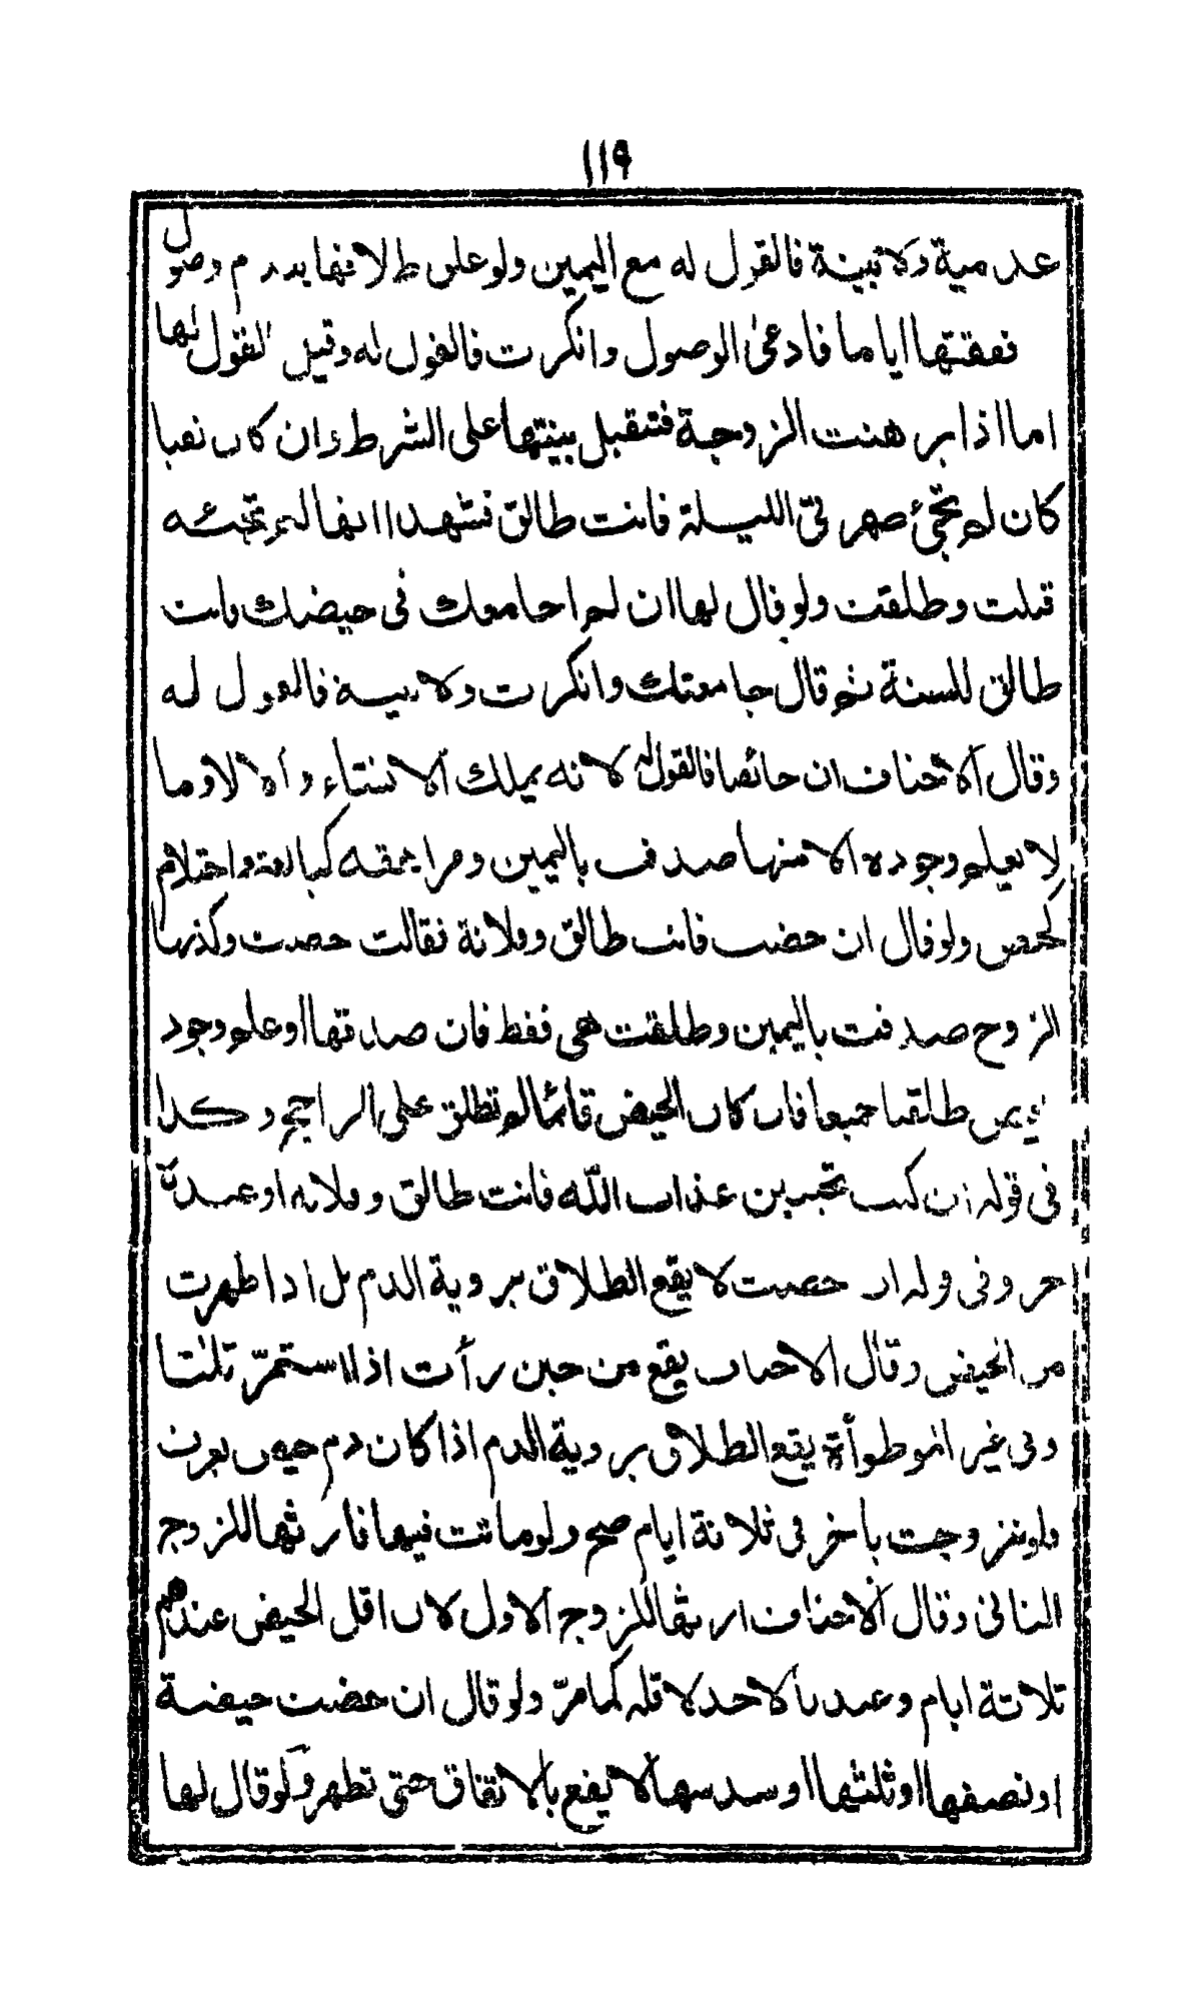 ١١٩
عدمية ولا بينة فالقول له مع اليمين ولو علق طلاقها بعدم وصول
نفقتها اياما فادعى الوصول وانكرت فالقول له وقيل القول لها
اما اذا برهنت الزوجة فتقبل بينتها على الشرط وان كان نفيا
كان لم تجئ صهرتي الليلة فانت طالق فشهدا انها لم تجئه
قبلت وطلقت ولو قال لها ان لم اجامعك في حيضك فانت
طالق للسنة ثم قال جامعتك وانكرت ولا بينة فالقول له
وقال الاحناف ان حائضا فالقول له لانه يملك الانشاء والا لا وما
لا يعلم وجوده الا منها صدقت باليمين ومراهقة كبالغة واحتلام
كحيض ولو قال ان حضت فانت طالق وفلانة فقالت حضت وكذبها
الزوج صدقت باليمين وطلقت هي فقط فان صدقها او علم وجود
حيض طلقتا جميعا فان كان الحيض قائما لم تطلق على الراجح وكذا
في قوله ان كنت تحبين عذاب الله فانت طالق وفلانة او عبده
حر وفي قوله ان حضت لا يقع الطلاق بروية الدم بل اذا طهرت
من الحيض وقال الاحناف يقع من حين رأت اذا استمرّ ثلثا
وفي غير الموطوأة يقع الطلاق بروية الدم اذا كان دم حيض
ولو تزوجت بآخر في ثلاثة ايام صح ولو ماتت فيها فارثها للزوج
الثاني وقال الاحناف ارثها للزوج الاول لان اقل الحيض عندهم
ثلاثة ايام وعندنا لا حد لاقله كما مرّ ولو قال ان حضت حيضة
او نصفها او ثلثها او سدسها لا يقع بالاتفاق حتى تطهر ولو قال لها